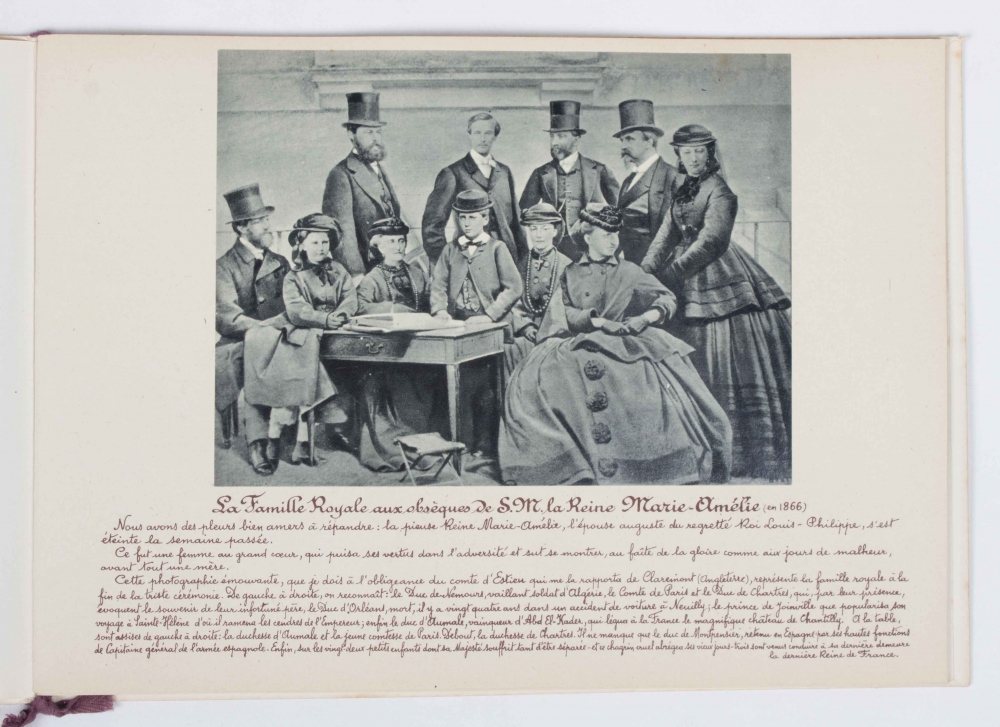 La Famille Royale aux obsèques de S.M. la Reine Marie-Amélie (en 1866)
Nous avons des pleurs bien amers à répandre : la pieuse Reine Marie-Amélie, l'épouse auguste du regretté Roi Louis-Philippe, s'est
éteinte la semaine passée.
Ce fut une femme au grand cœur, qui puisa ses vertus dans l'adversité et sut se montrer, au faîte de la gloire comme aux jours de malheur,
avant tout une mère.
Cette photographie émouvante, que je dois à l'obligeance du comte d'Estien qui me la rapporta de Claremont (Angleterre), représente la famille royale à la
fin de la triste cérémonie. De gauche à droite, on reconnaît : le Duc de Nemours, vaillant soldat d'Algérie, le Comte de Paris et le Duc de Chartres, qui, par leur présence,
évoquent le souvenir de leur infortuné père, le Duc d'Orléans, mort, il y a vingt quatre ans dans un accident de voiture à Neuilly ; le prince de Joinville que popularisa son
voyage à Sainte-Hélène d'où il ramena les cendres de l'Empereur ; enfin le duc d'Aumale, vainqueur d'Abd El-Kader, qui légua à la France le magnifique château de Chantilly. A la table,
sont assises de gauche à droite : la duchesse d'Aumale et la jeune comtesse de Paris. Debout, la duchesse de Chartres. Il ne manque que le duc de Montpensier, retenu en Espagne par ses hautes fonctions
de Capitaine général de l'armée espagnole. Enfin, sur les vingt-deux petits enfants dont sa Majesté souffrit tant d'être séparée - et ce chagrin cruel abrégea ses vieux jours - trois sont venus conduire à sa dernière demeure
la dernière Reine de France.